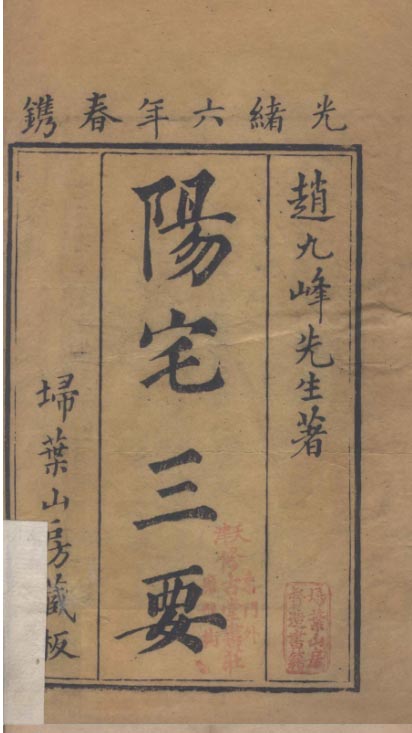 光緒六年春鐫
趙九峰先生著
陽宅三要
埽葉山房藏板
埽葉山房
督造書籍